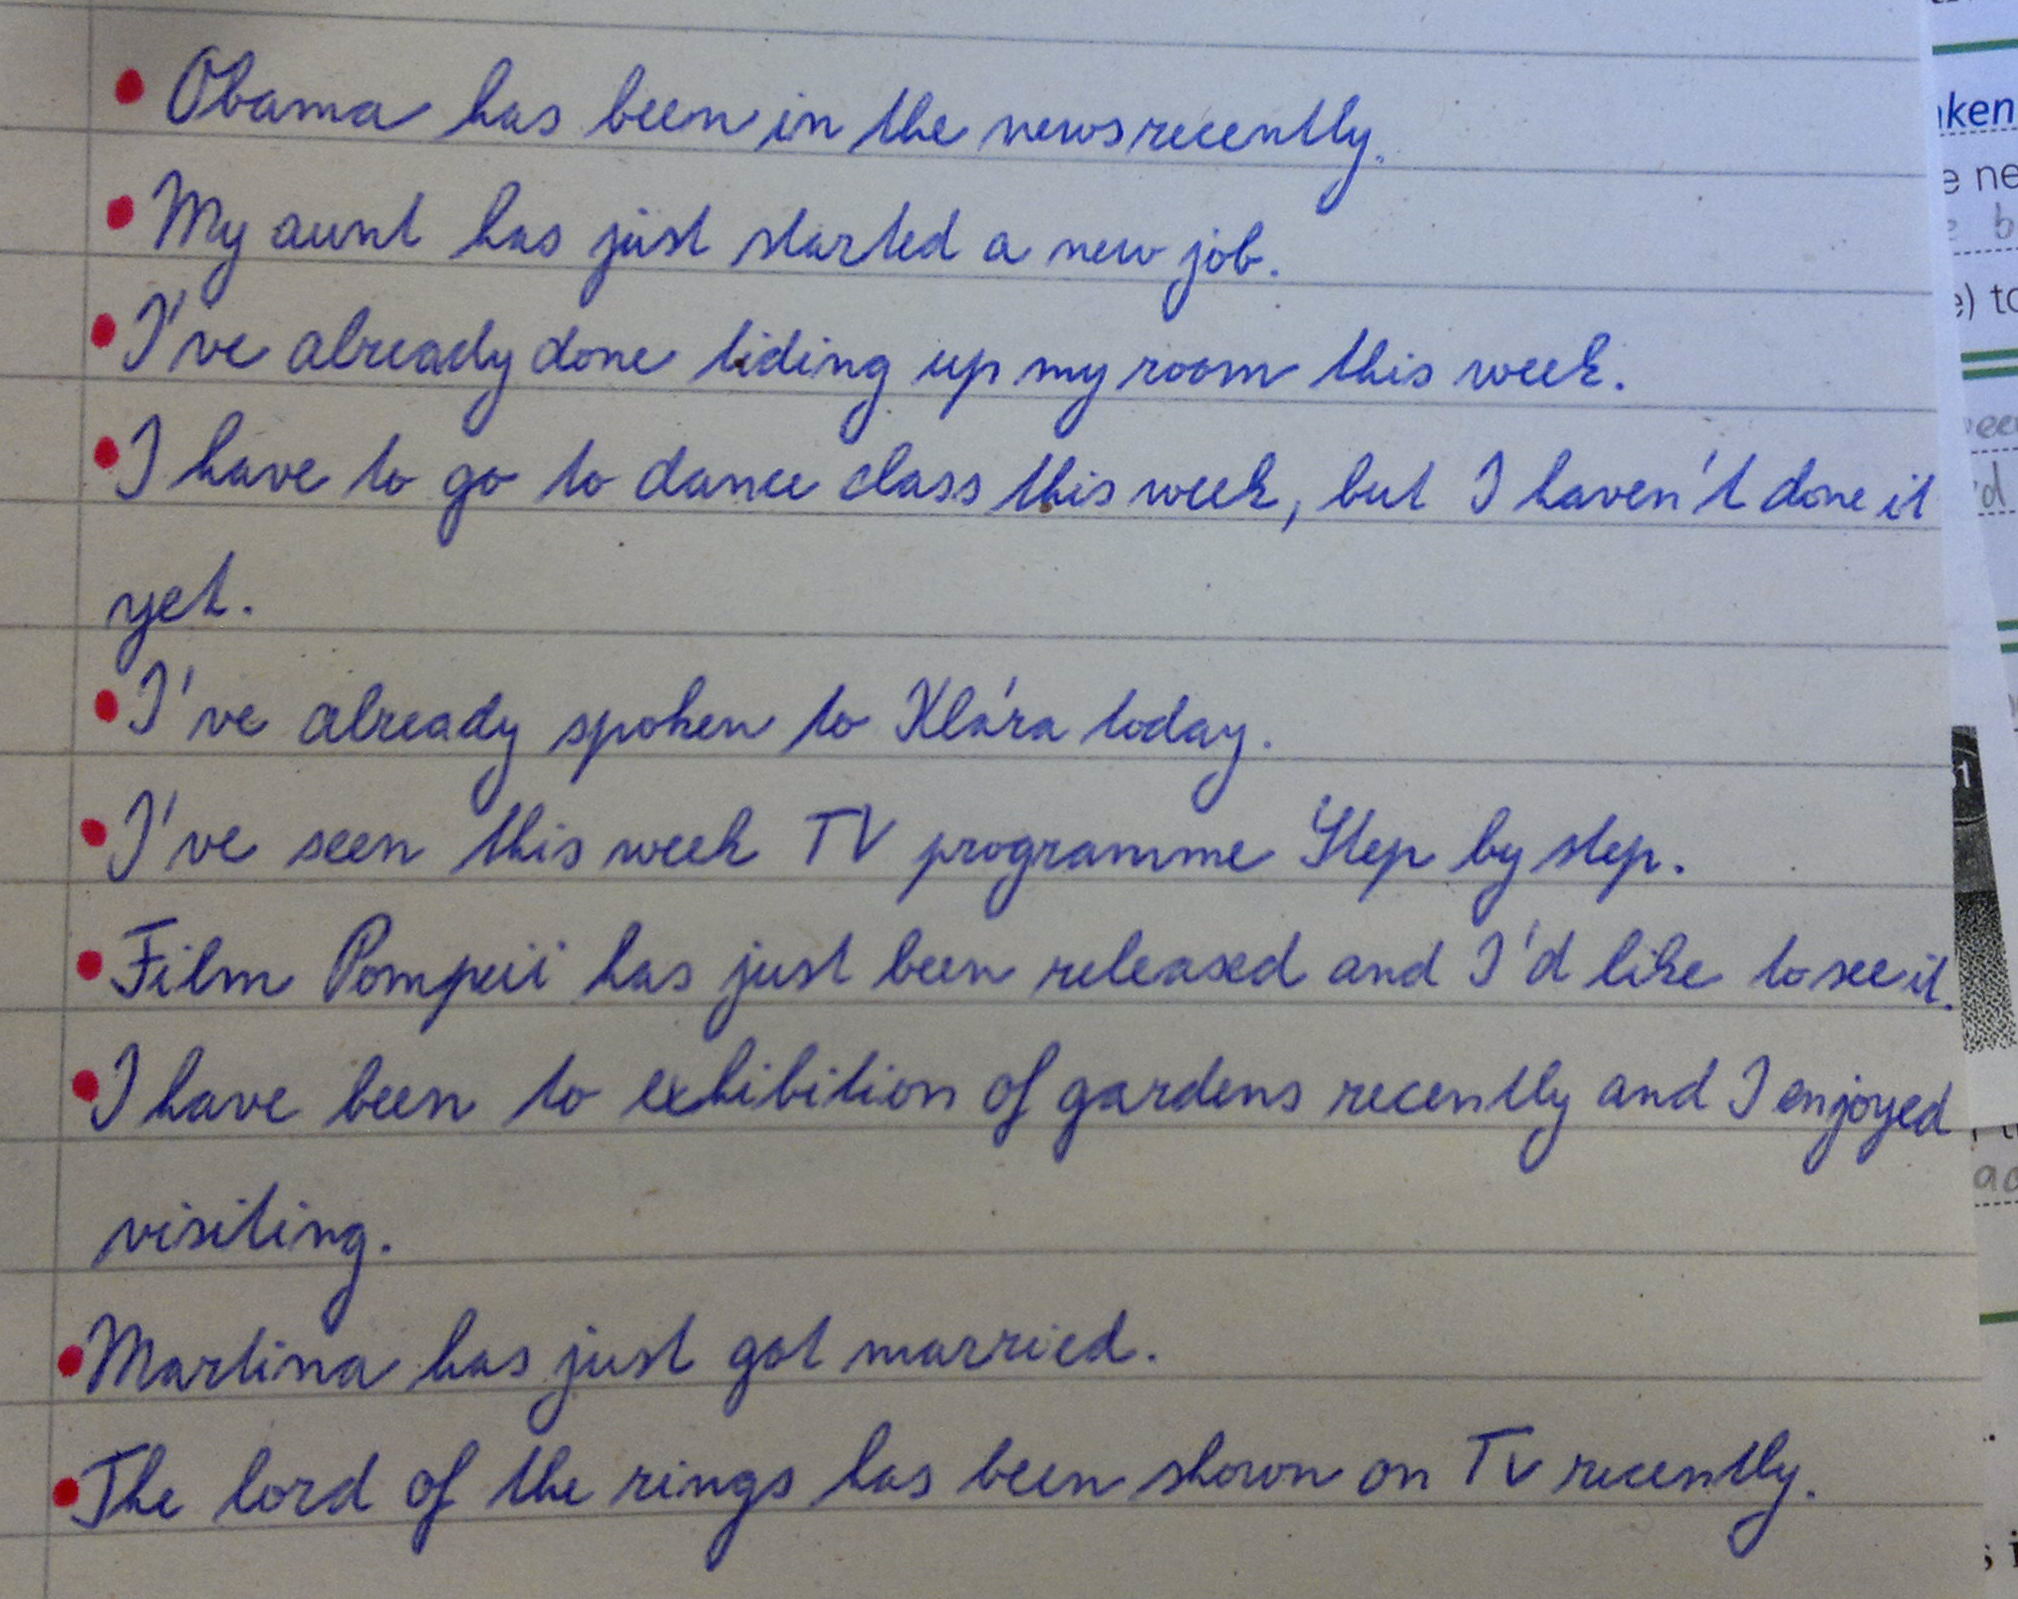 • Obama has been in the news recently.
• My aunt has just started a new job.
• I've already done tiding up my room this week.
• I have to go to dance class this week, but I haven't done it
yet.
• I've already spoken to Klára today.
• I've seen this week TV programme Step by step.
• Film Pompeii has just been released and I'd like to see it.
• I have been to exhibition of gardens recently and I enjoyed
visiting.
• Martina has just got married.
• The lord of the rings has been shown on TV recently.